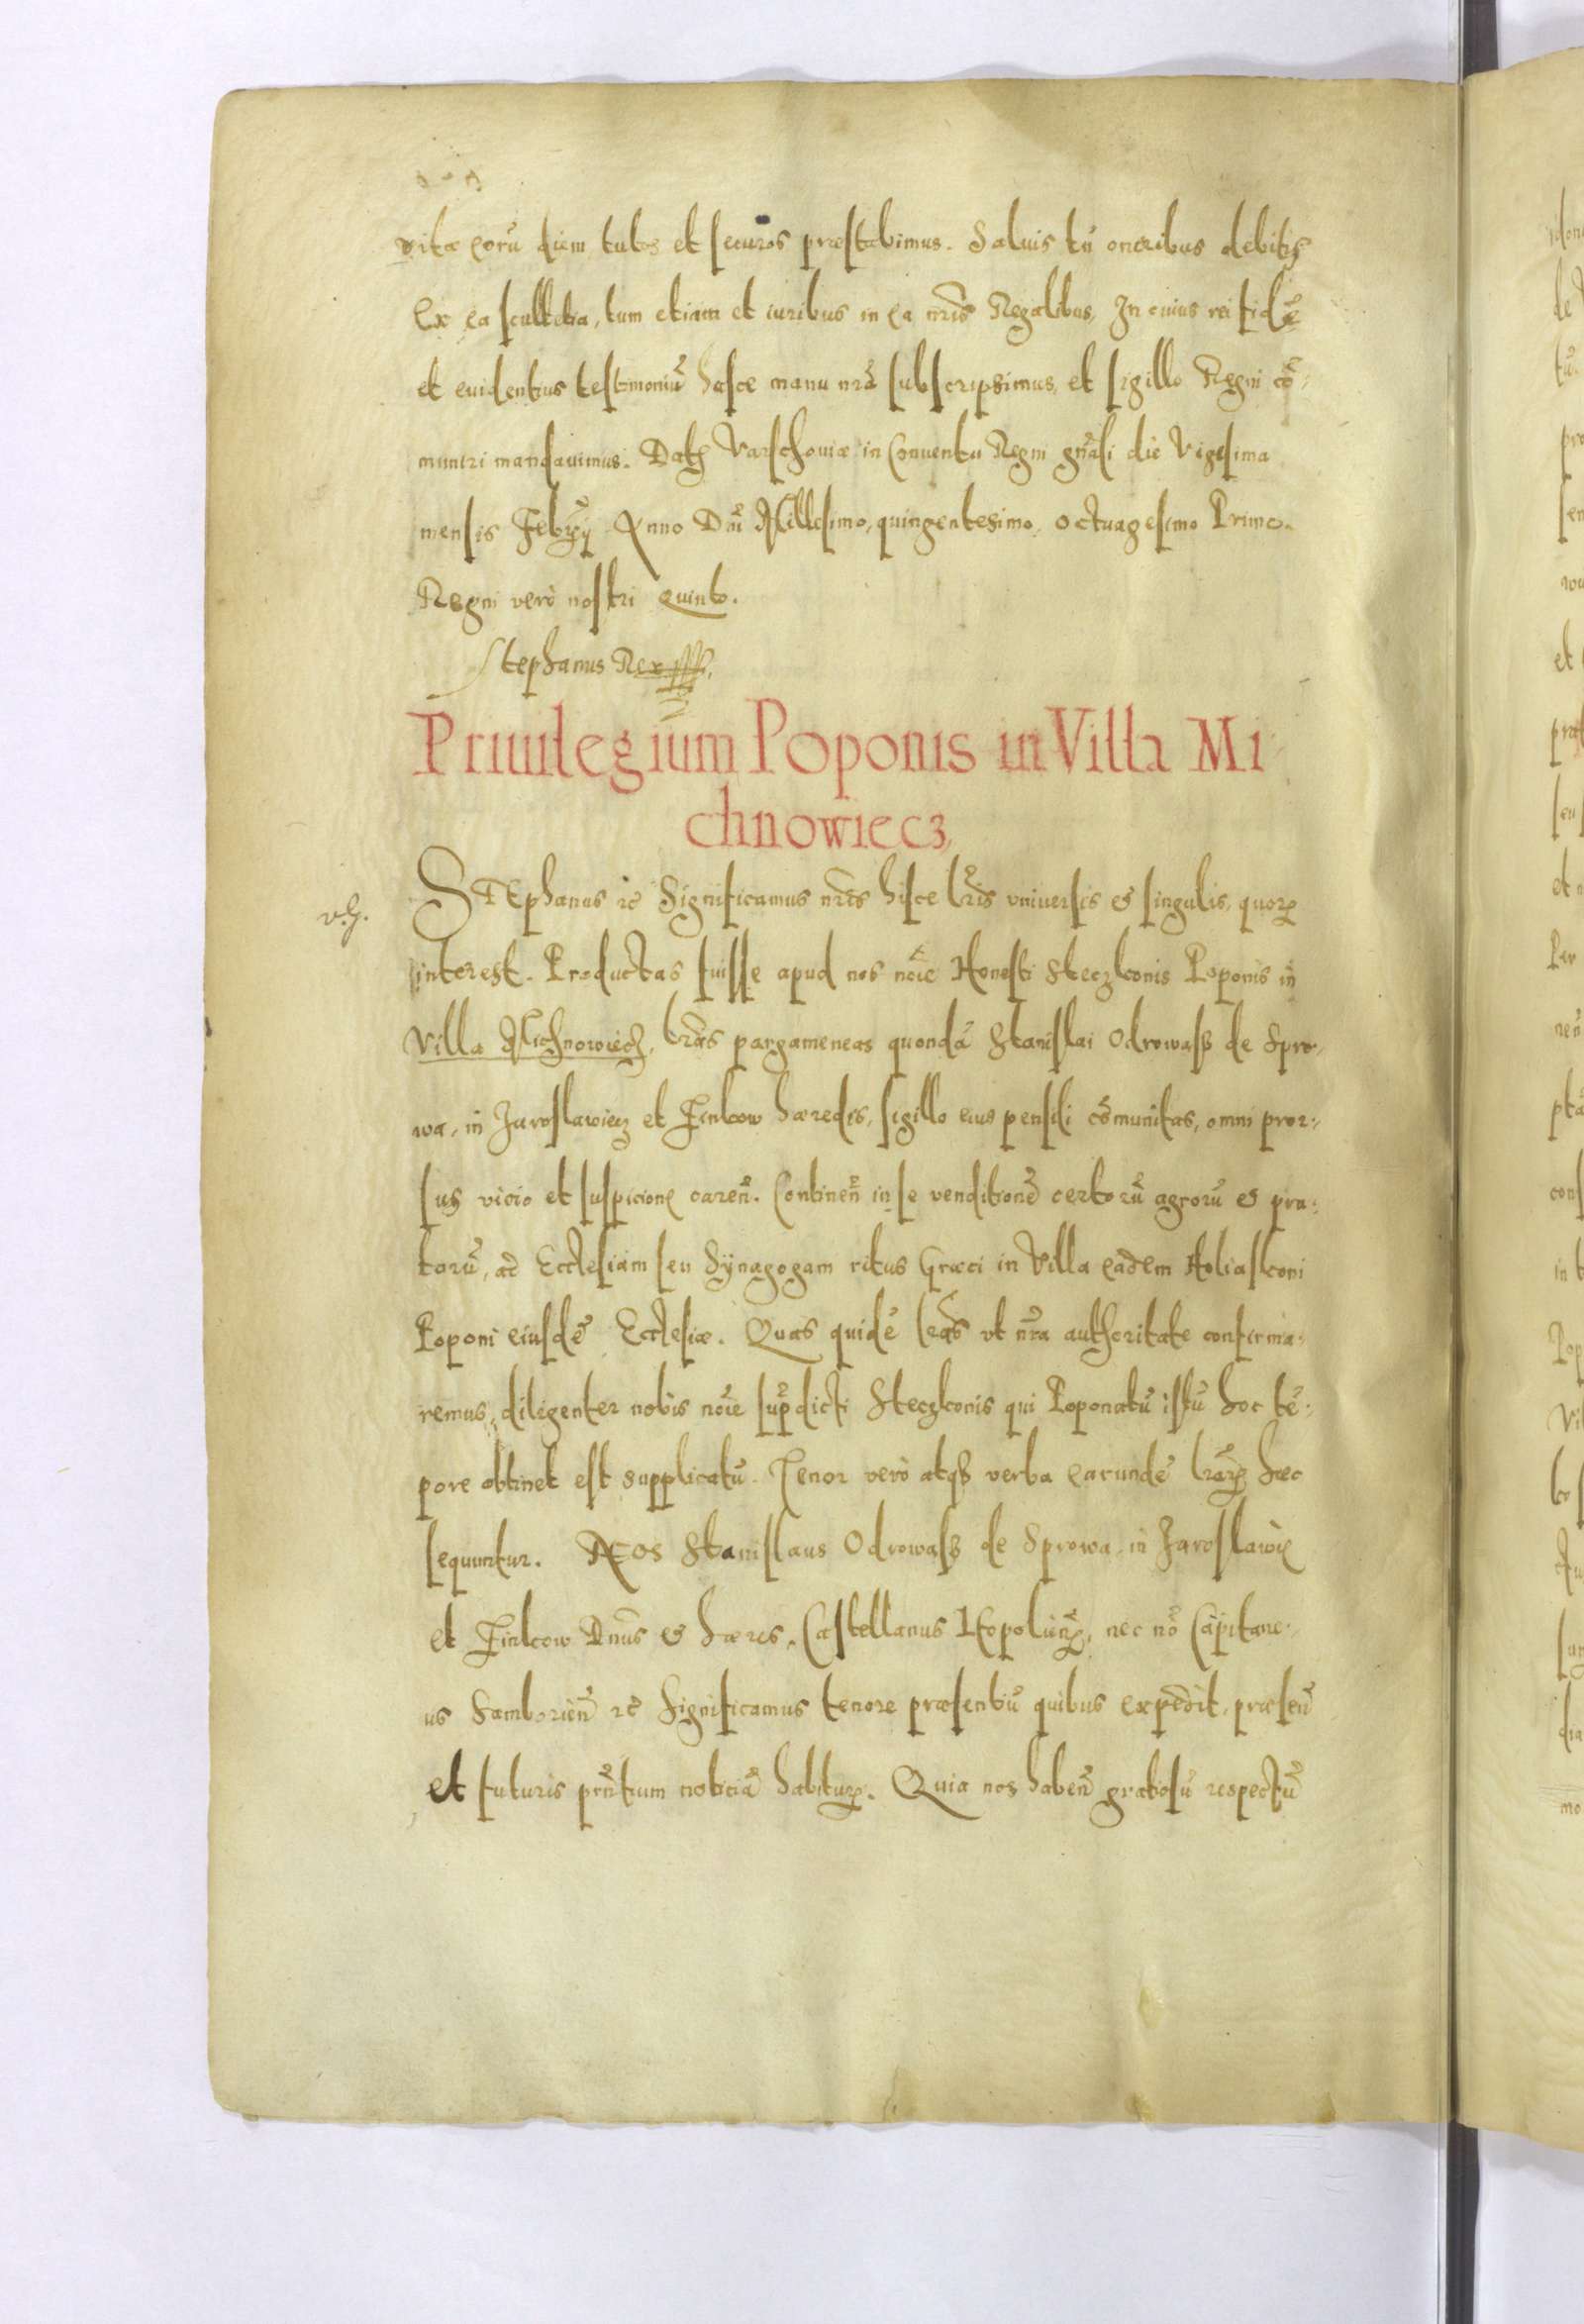 vitæ eorũ diem tutos et securos præstabimus. Saluis tñ oneribus debitis
Ex ea scultetia, tum etiam et iuribus in ea nr̃is Regalibus, In cuius rei fidẽ
et euidentius testimoniũ hasce manu nr̃a subscripsimus, et sigillo Regni cõ-
muniri mandauimus. Dat Varschouiæ in Conuentu Regni gñali die Vigesima
mensis Febr̃ Anno Dñi Millesimo, quingentesimo, octuagesimo Primo.
Regni verò nostri Quinto.
Stephanus Rex
Priuilegium Poponis in Villa Mi
chnowiecz,
STEphanus ꝛc̃ Significamus nr̃is hisce lr̃is vniuersis & singulis, quorꝝ
interest. Productas fuisse apud nos nõie Honesti Steczkonis Poponis in
Villa Michnowiecz, lr̃as pargameneas quondã Stanislai Odrowasz de Spro-
wa, in Jaroslawiecz et Finkow hæredis, sigillo eius pensili cõmunitas, omni pror-
sus vicio et suspicione careñ. Contineñ in se venditionẽ certorũ agrorũ & pra-
torũ, ad Ecclesiam seu Synagogam ritus Græci in Villa eadem Holiaskoni
Poponi eiusdẽ Ecclesiæ. Quas quidẽ lr̃as vt nr̃a authoritate confirma-
remus, diligenter nobis nõie supradicti Steczkonis qui Poponatũ istũ hoc tẽ-
pore obtinet est supplicatũ. Tenor verò atqꝫ verba earundẽ lr̃arꝝ hæc
sequuntur. NOS Stanislaus Odrowasz de Sprowa, in Jaroslawie
et Finkow Dñus & hæres, Castellanus Leopolieñ, nec nõ Capitane-
us Samborieñ ꝛc̃ Significamus tenore præsentiũ quibus expedit, præseñ
et futuris pñtium noticiã habiturꝝ. Quia nos habeñ gratiosũ respectũ